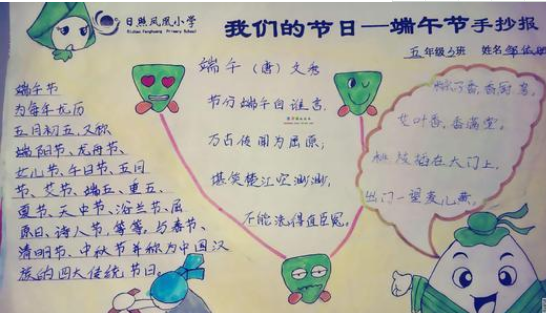 日照凤凰小学
Rizhao Fenghuang Primary School
我们的节日—端午节手抄报
五年级3班 姓名
端午节
为每年农历
五月初五,又称
端阳节、龙舟节、
女儿节、午日节、五月
节、艾节、端五、重五、
夏节、天中节、浴兰节、屈
原日、诗人节,等等。与春节、
清明节、中秋节并称为中国汉
族的四大传统节日。
端午(唐)文秀
节分端午自谁言,
万古传闻为屈原;
堪笑楚江空渺渺,
不能洗得直臣冤。
粽子香,香厨房,
艾叶香,香满堂,
桃枝插在大门上,
出门一望麦儿黄。